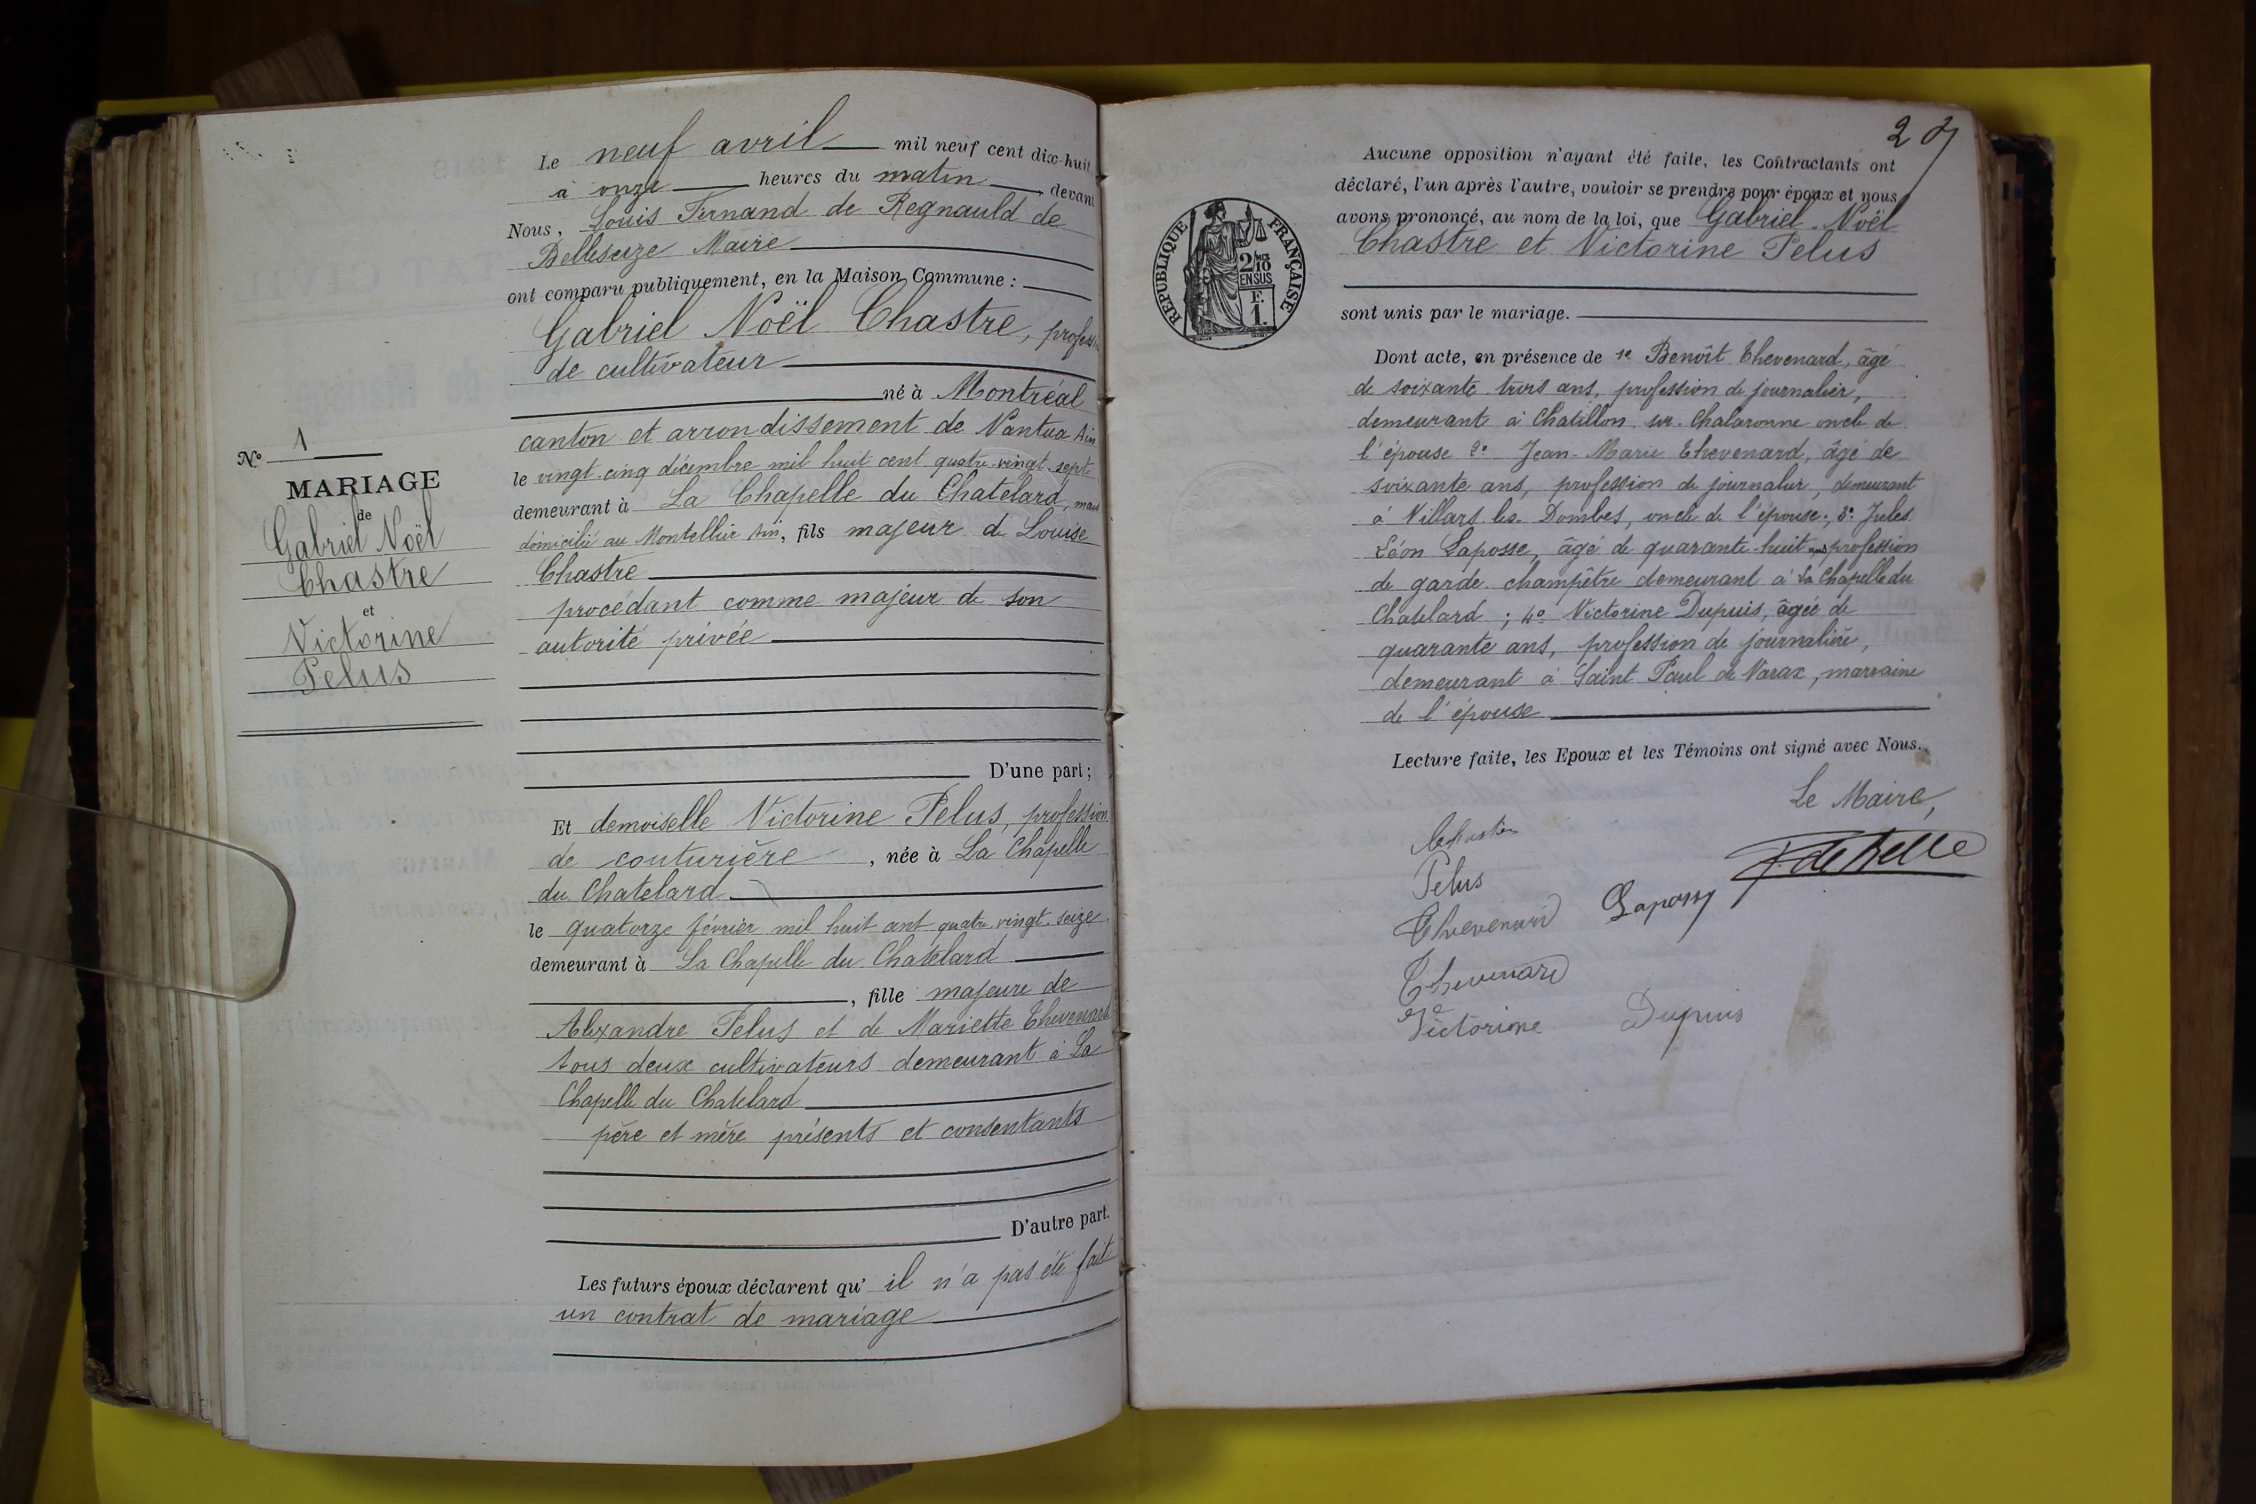 Le neuf avril mil neuf cent dix-huit
à onze heures du matin, devant
Nous, Louis Fernand de Regnauld de
Bellescize Maire
ont comparu publiquement, en la Maison Commune :
Gabriel Noël Chastre, profession
de cultivateur
né à Montréal
canton et arrondissement de Nantua Ain
le vingt-cinq décembre mil huit cent quatre-vingt-sept
demeurant à La Chapelle du Chatelard, mais
domicilié au Montellier Ain, fils majeur de Louise
Chastre
procédant comme majeur de son
autorité privée
D'une part ;
Et demoiselle Victorine Pelus, profession
de couturière, née à La Chapelle
du Chatelard
le quatorze février mil huit cent quatre vingt-seize
demeurant à La Chapelle du Chatelard
, fille majeure de
Alexandre Pelus et de Mariette Thevenard
tous deux cultivateurs demeurant à La
Chapelle du Chatelard
père et mère présents et consentants
D'autre part.
Les futurs époux déclarent qu' il n'a pas été fait
un contrat de mariage
N° 1
MARIAGE
de
Gabriel Noël
Chastre
et
Victorine
Pelus
2
Aucune opposition n'ayant été faite, les Contractants ont
déclaré, l'un après l'autre, vouloir se prendre pour époux et nous
avons prononcé, au nom de la loi, que Gabriel Noël
Chastre et Victorine Pelus
sont unis par le mariage.
RÉPUBLIQUE FRANÇAISE
2/10
EN SUS
F.
1.
Dont acte, en présence de 1e Benoît Thevenard, âgé
de soixante trois ans, profession de journalier,
demeurant à Chatillon sur Chalaronne oncle de
l'épouse 2e Jean-Marie Thevenard, âgé de
soixante ans, profession de journalier, demeurant
à Villars les Dombes, oncle de l'épouse ; 3e Jules
Léon Laposse, âgé de quarante-huit ans profession
de garde champêtre demeurant à La Chapelle du
Chatelard ; 4o Victorine Dupuis, âgée de
quarante ans, profession de journalière,
demeurant à Saint Paul de Varax, marraine
de l'épouse
Lecture faite, les Epoux et les Témoins ont signé avec Nous.
Le Maire,
Chastre
Pelus
F. de Belle
Thevenard Laposse
Thevenard
Victorine Dupuis